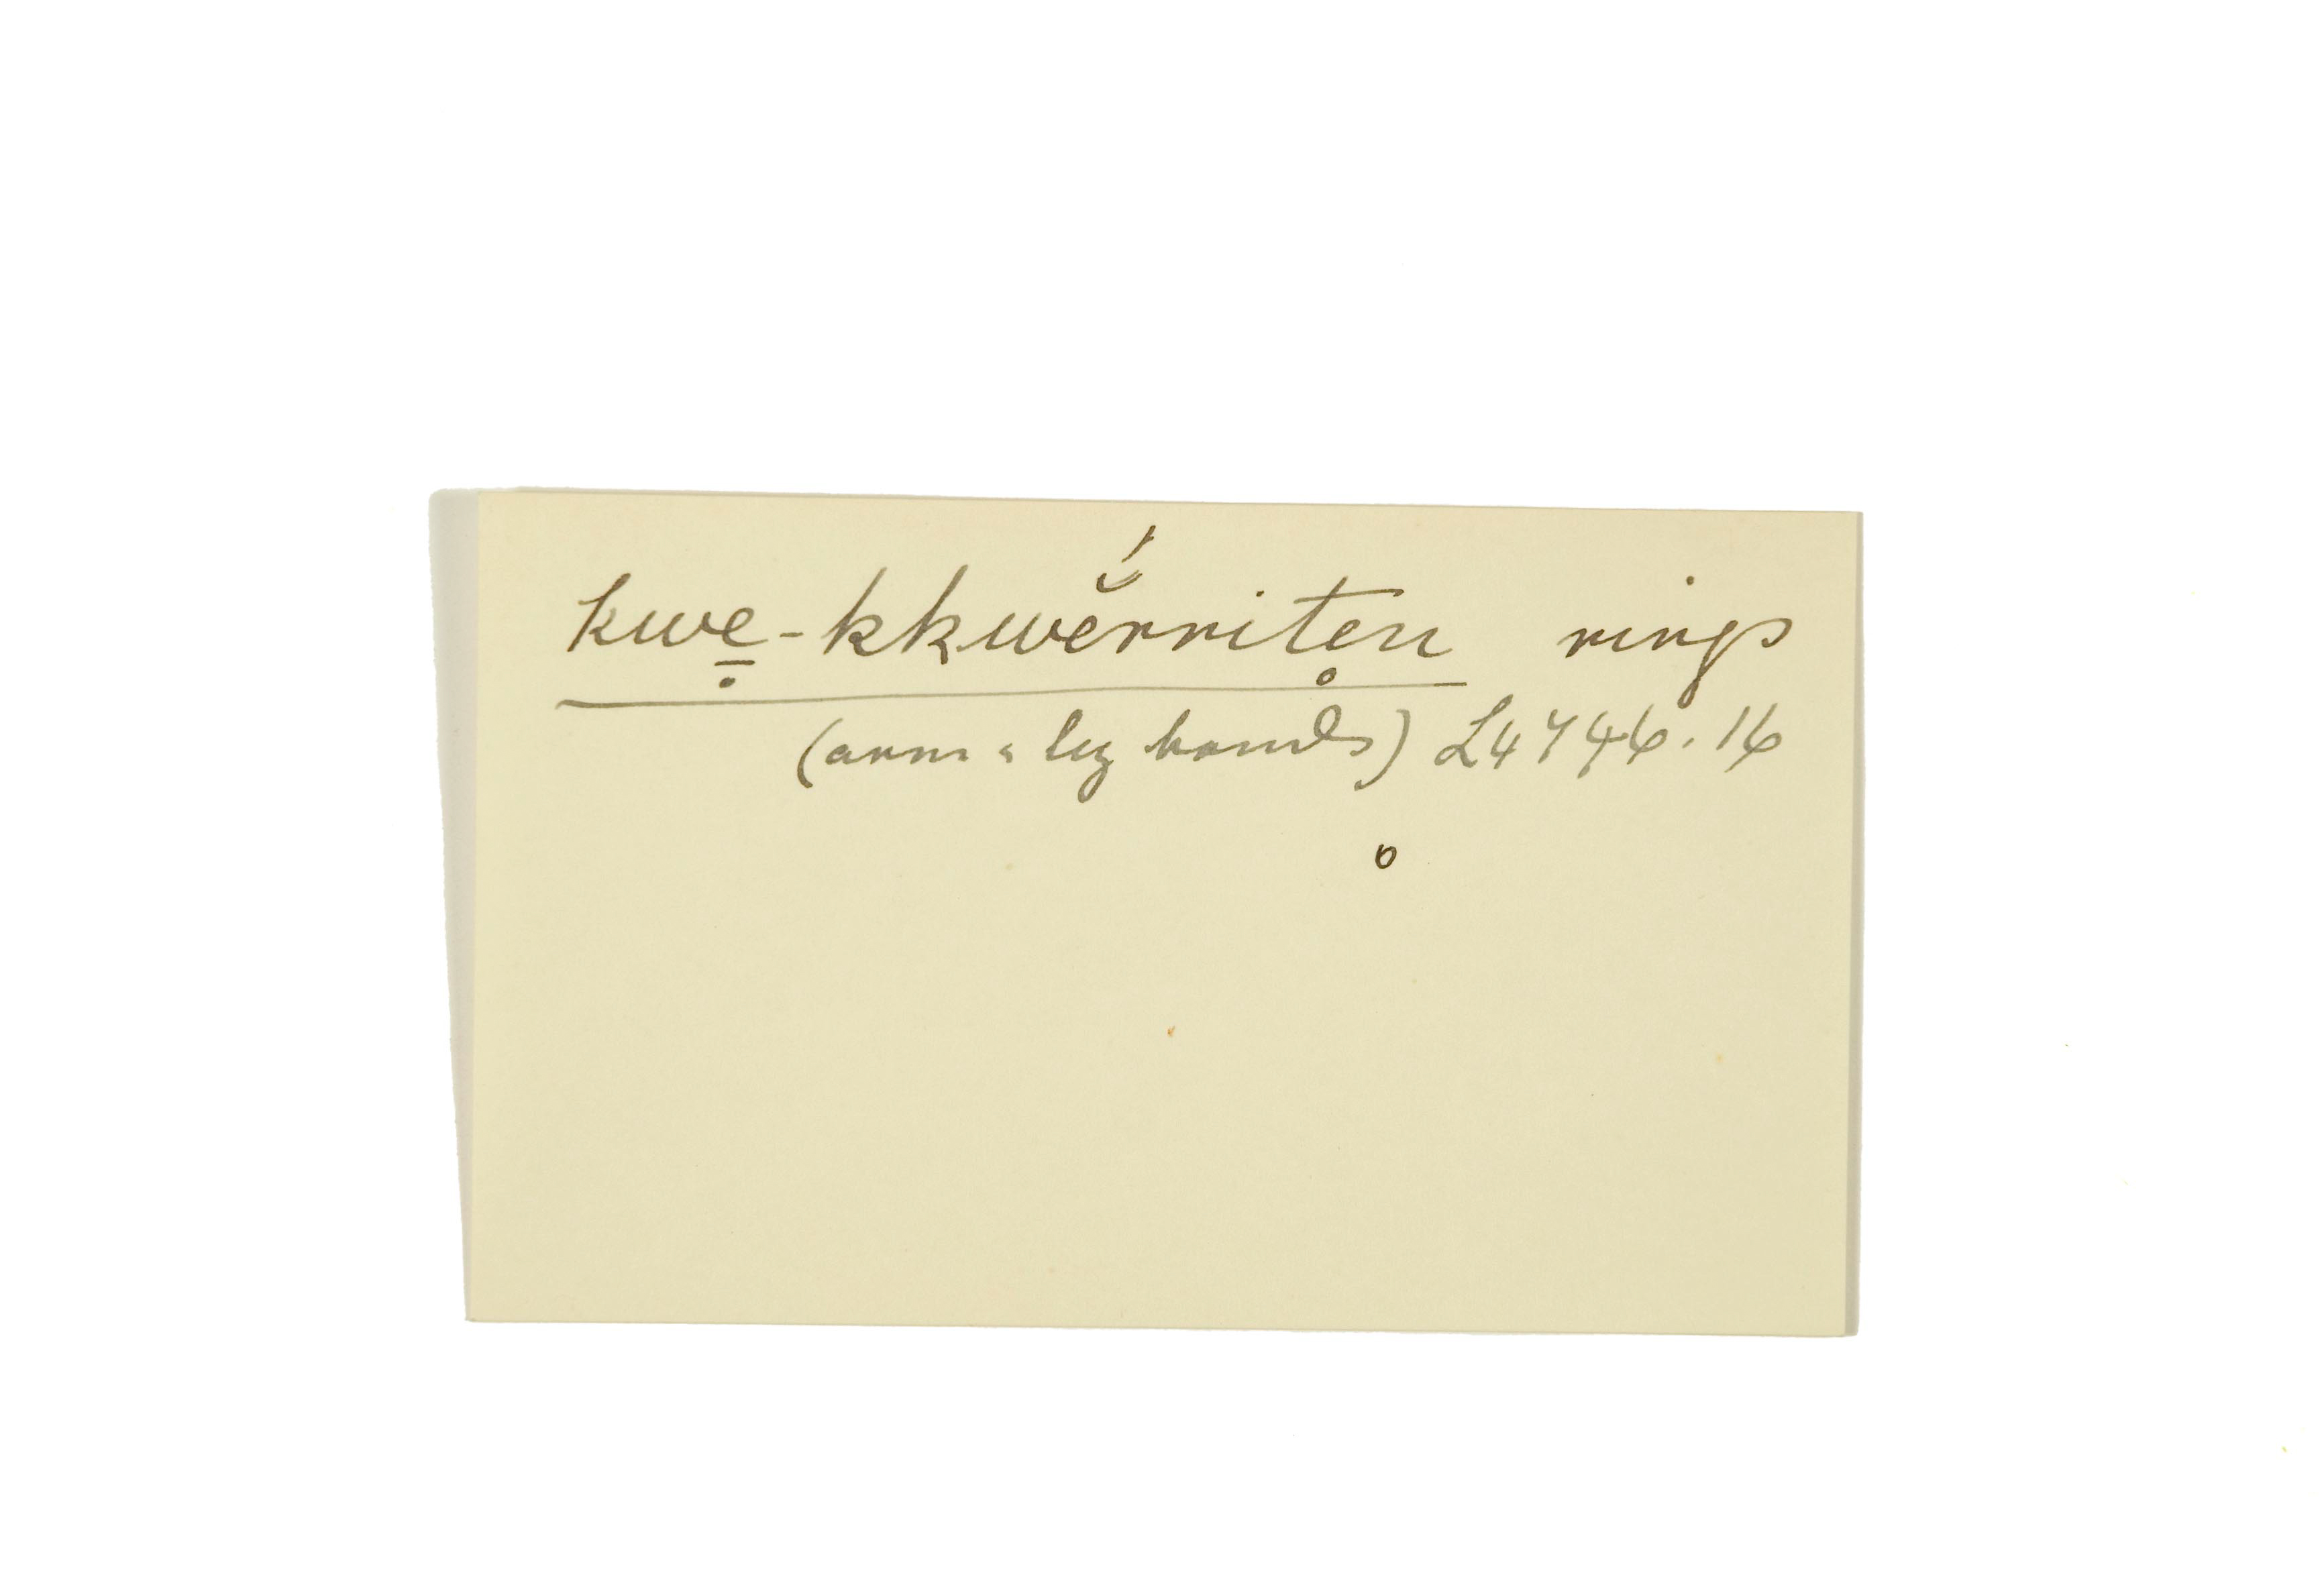 kwẹ̱-kkwĕ́rritẹn rings
(arm & leg bands) L4746.16
o